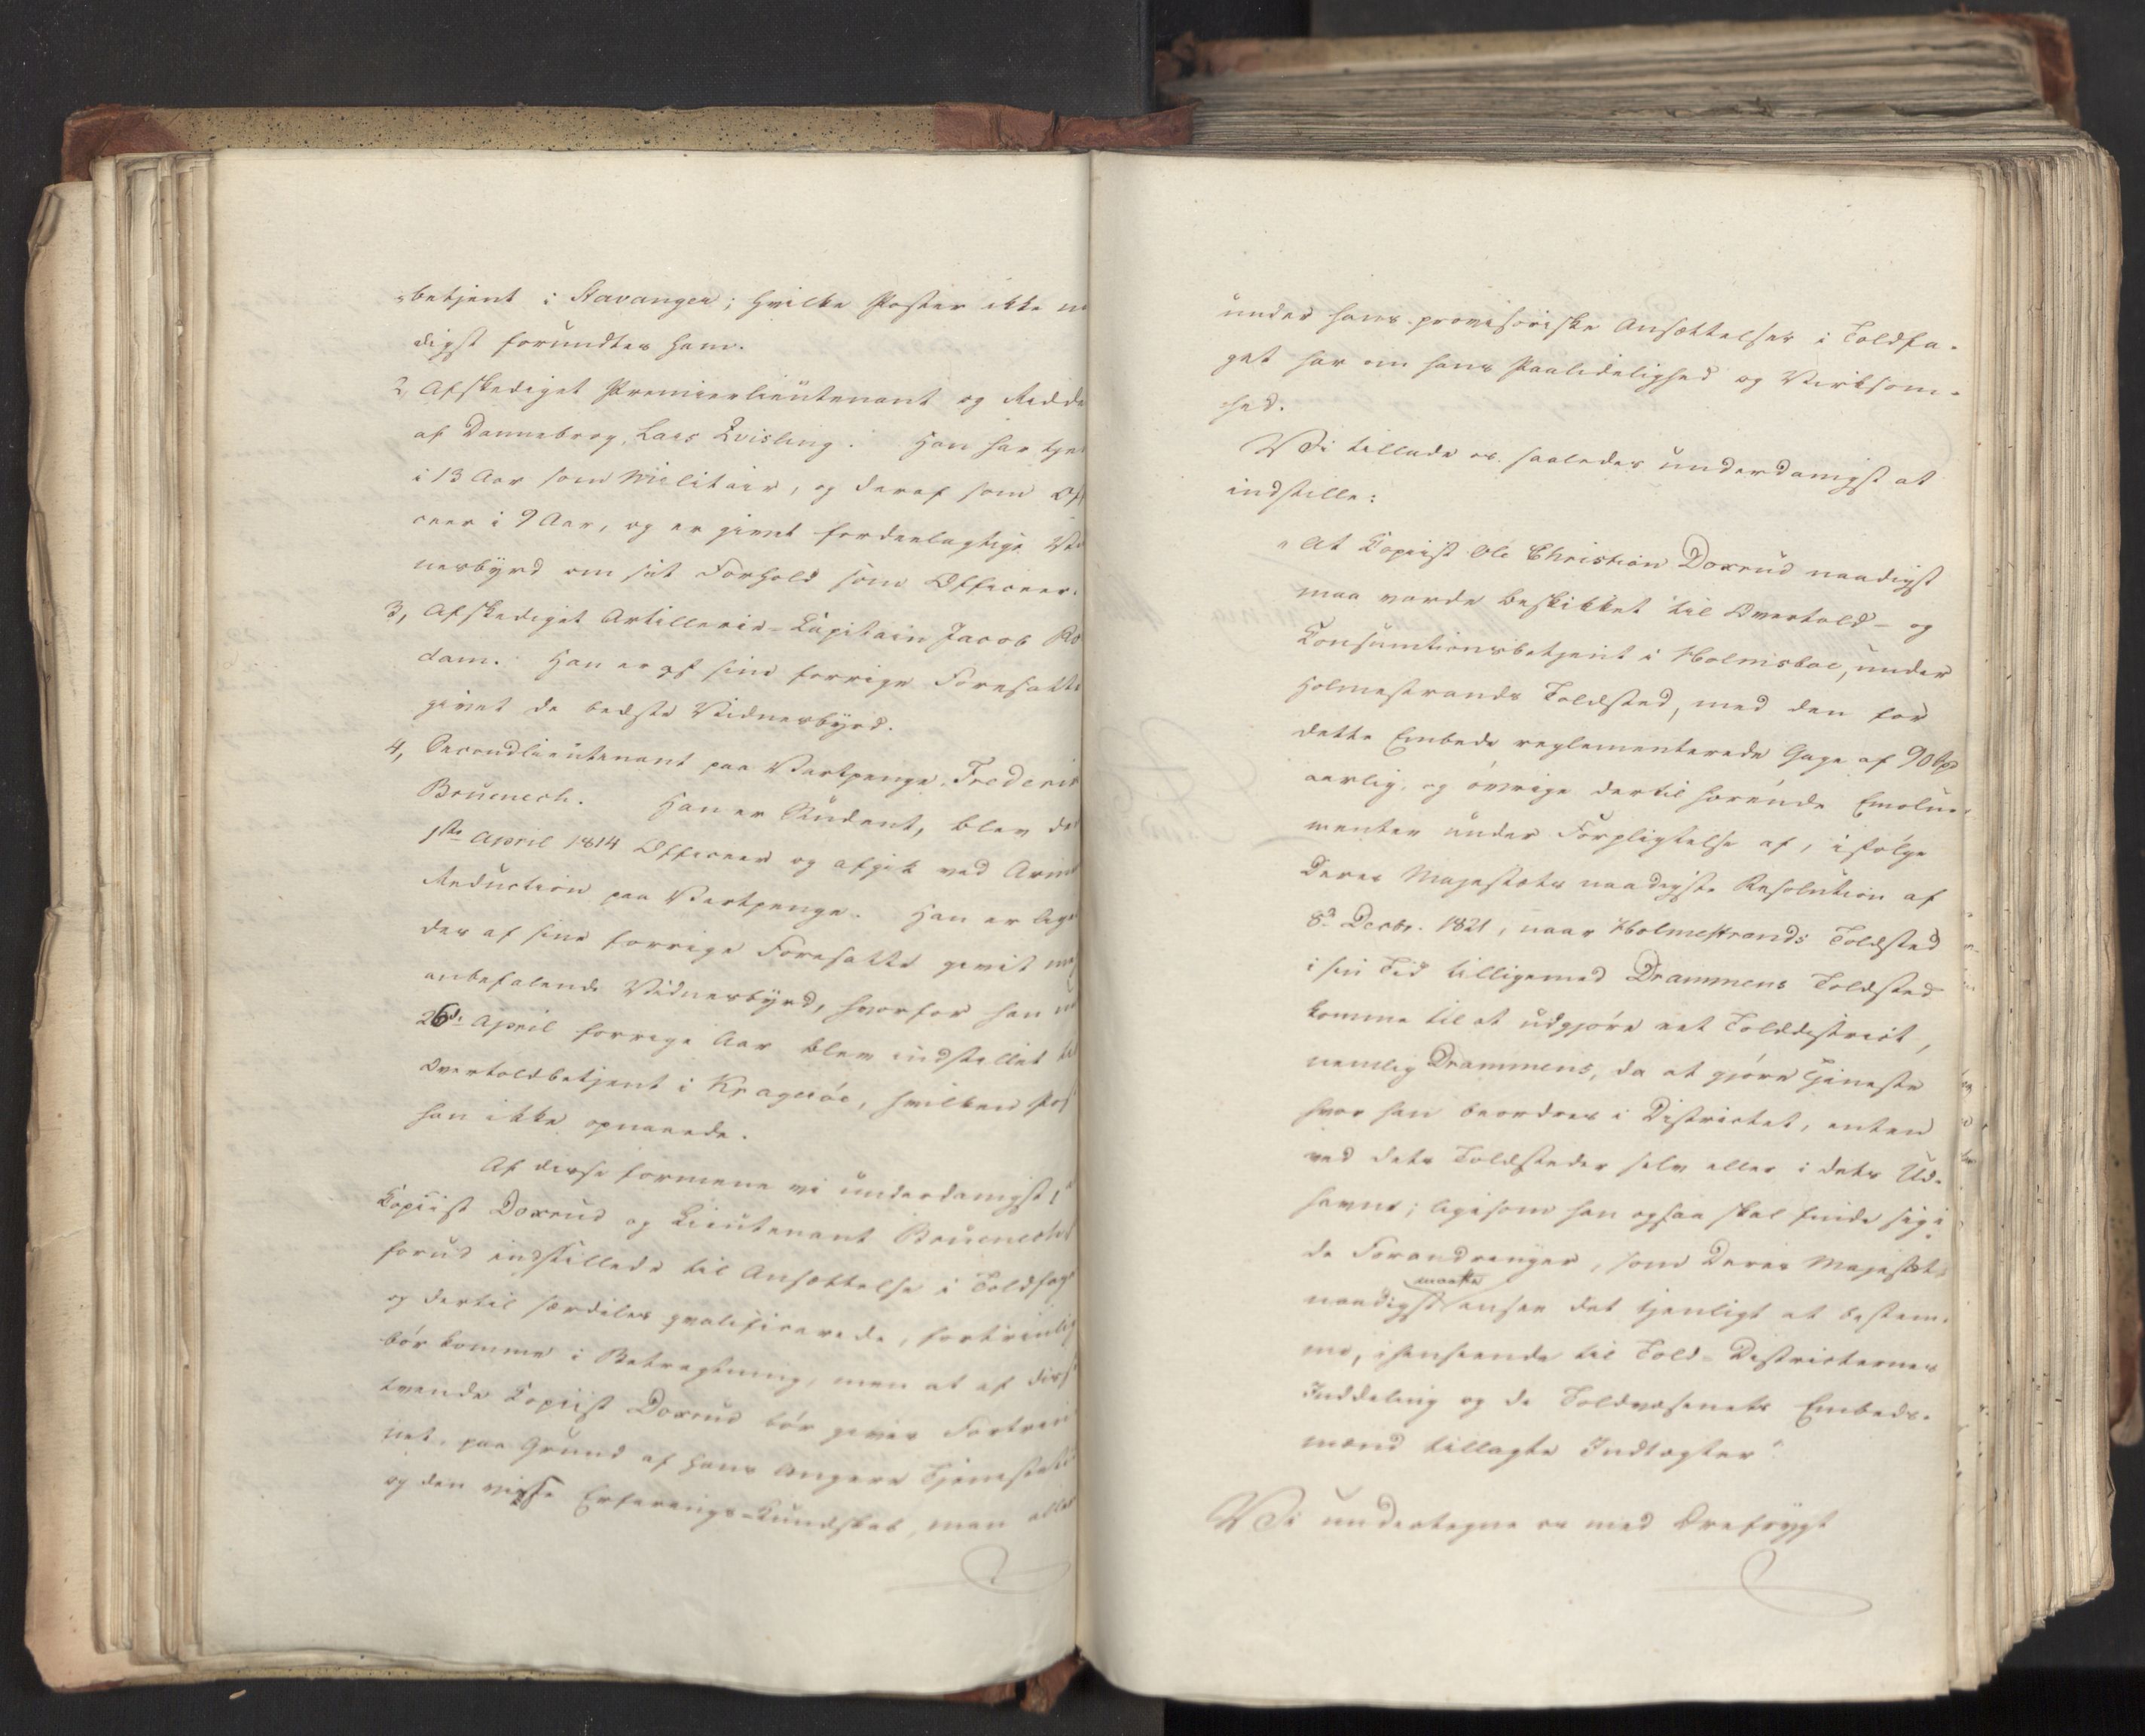 betjent i Stavanger; hvilke Poster ikke
digst forundtes ham.
2, Afskediget Premierlieutenant og Ridde
af Dannebrog, Lars Qvisling. Han har tje
i 13 Aar som Militair, og deraf som Of
ceer i 9 Aar, og er givet fordeelagtige Vid
nesbyrd om sit Forhold som Officeer.
3, Afskediget Artillerie-Capitain Jacob Ro
dam. Han er af sine forrige Foresatte
givet de bedste Vidnesbyrd.
4, Secondlieutenant paa Vartpenge, Frederik
Bruenech. Han er Student, blev den
1ste April 1814 Officeer og afgik ved Armé
Reduction paa Vartpenge. Han er lige
des af sine forrige Foresatte givet meg
anbefalende Vidnesbyrd, hvorfor han
26de April forrige Aar blev indstillet til
Overtoldbetjent i Krageröe, hvilken Post
han ikke opnaaede.
Af disse formene vi underdanigst,
Kopiist Doxrud og Lieutenant Bruenech
forud indstillede til Ansættelse i Toldfaget
og dertil særdeles qvalificerede, fortrinlig
bör komme i Betragtning, men at af disse
tvende Kopiist Doxrud bör gives Fortrin
net, paa Grund af hans længere Tjenestetid
og den visse Erfarings-Kundskab, man alle
under hans provisoriske Ansættelser i Toldfa-
get har om hans Paalidelighed og Virksom-
hed.
Vi tillade os saaledes underdanigst at
indstille:
"At Kopiist Ole Christian Doxrud naadigst
maa vorde beskikket til Overtold- og
Consumtionsbetjent i Holmsboe, under
Holmestrands Toldsted, med den for
dette Embede reglementerede Gage af 90 Spd
aarlig, og övrige dertil hörende Emolu-
menter under Forpligtelse af, ifölge
Deres Majestæts naadigste Resolution af
8de Decbr. 1821, naar Holmestrands Toldsted
i sin Tid tilligemed Drammens Toldsted
komme til at udgjöre eet Tolddistrict,
nemlig Drammens, da at gjöre Tjeneste
hvor han beordres i Districtet, enten
ved dets Toldsteder selv eller i dets Ud-
havne; ligesom han ogsaa skal finde sig i
de Forandringer, som Deres Majestæt
maatte
naadigst ansee det tjenligt at bestem-
me, i henseende til Told-Districternes
Inddeling og de Toldvæsenets Embeds-
mænd tillagte Indtægter"
Vi undertegne os med Ærefrygt